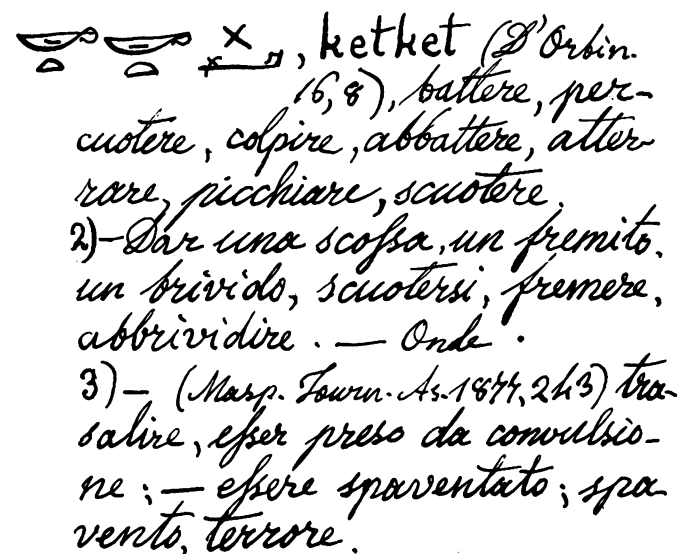 𓎡𓏏𓎡𓏏𓏴𓂡, ketket (D'Orbin.
16,8), battere, per-
cuotere, colpire, abbattere, atter-
rare, picchiare, scuotere.
2)—Dar una scossa, un fremito,
un brivido, scuotersi, fremere,
abbrividire. — Onde.
3)— (Masp. Journ. As. 1877, 243) tra-
salire, esser preso da convulsio-
ne; — essere spaventato; spa-
vento, terrore.